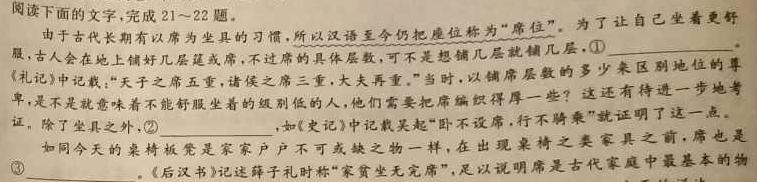 阅读下面的文字,完成 21~22 题。
由于古代长期有以席为坐具的习惯,所以汉语至今仍把座位称为“席位”。为了让自己坐着更舒
服,古人会在地上铺好几层筵或席,不过席的具体层数,可不是想铺几层就铺几层,①____________。
《礼记》中记载:“天子之席五重,诸侯之席三重,大夫再重。”当时,以铺席层数的多少来区别地位的尊
卑,是不是就意味着不能舒服坐着的级别低的人,他们需要把席编织得厚一些?这还有待进一步地考
证。除了坐具之外,②____________,如《史记》中记载吴起“卧不设席,行不骑乘”就证明了这一点。
如同今天的桌椅板凳是家家户户不可或缺之物一样,在出现桌椅之类家具之前,席也是
③____________。《后汉书》记述薛子礼时称“家贫坐无完席”,足以说明席是古代家庭中最基本的物